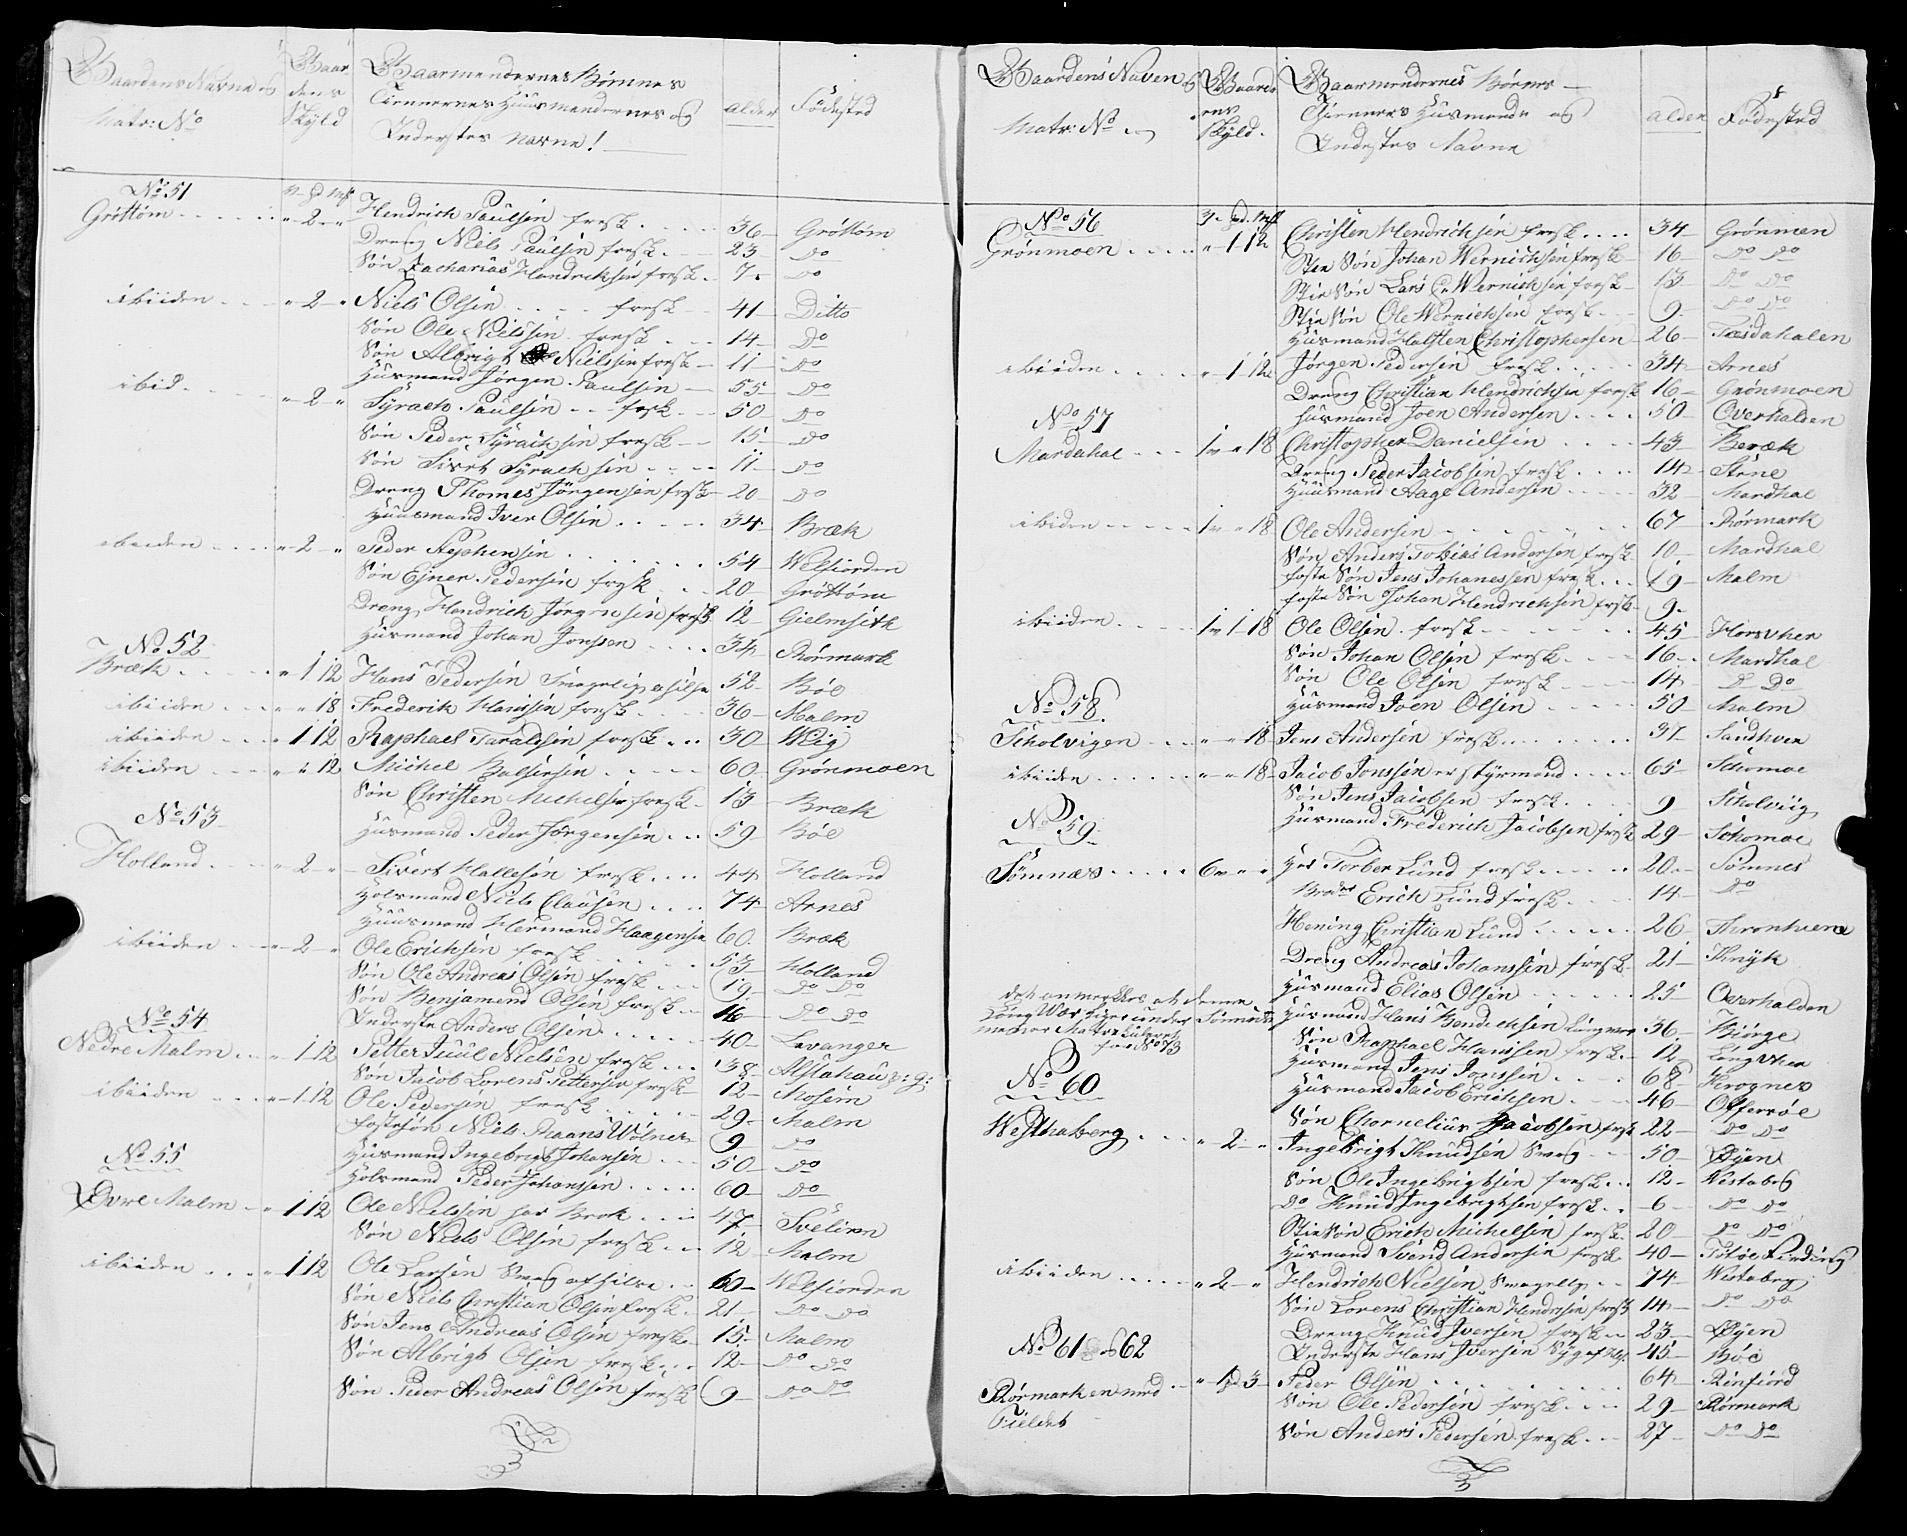 Gaardens Navne og
Matr: No
Gaar
dens
Skyld
Gaarmendernes Børnnes
Tiennernes Huusmendernes og
Inderstes navne!
alder
Födested
No 51
Gröttöm " 2 " Hendrich Paulsen fresk 36 Gröttöm
Dreng Niels Paulsen fresk 23 Do
Søn Zacharias Hendrichsen fresk 7 Do
ibiiden " 2 " Niels Olsen fresk 41 Ditto
Søn Ole Nielssen fresk 14 Do
Søn Albrigt Nielssen fresk 11 Do
Husmand Jørgen Paulsen 55 Do
ibid " 2 " Syrach Paulsen fresk 50 Do
Søn Peder Syrachsen fresk 15 Do
Søn Sivert Syrachsen 11 Do
Dreng Thomes Jörgensen fresk 20 Do
Huusmand Iver Olsen 34 Bræk
ibeiden " 2 " Peder Stephensen 54 Welfiorden
Søn Ejner Pedersen fresk 20 Gröttöm
Dreng Hendrich Jørgensen fresk 12 Gielmsith
Husmand Johan Jonssen 34 Rørmark
No 52
Bræk " 1 12 Hans Pedersen Smagelig 52 Böe
ibiiden " " 18 Frederik Hanssen fresk 36 Malm
ibiiden " 1 12 Raphael Taraldsen fresk 30 Wiig
ibiiden " " 12 Michel Balsersen 60 Grönmoen
Søn Christen Michelsen fresk 13 Bræk
Husmand Peder Jørgensen 59 Böe
No 53
Holland " 2 " Sivert Hallesen fresk 44 Holland
Husmand Niels Clausen 74 Arnes
Huusmand Hermand Haagensen 60 Bræk
ibiiden " 2 " Ole Erichsen fresk 53 Holland
Søn Ole Andreas Olsen fresk 19 Do Do
Søn Benjamend Olsen fresk 16 Do Do
Inderste Anders Olsen 40 Levanger
No 54
Nedre Malm " 1 12 Petter Juul Nielsen fresk 38 Alstahau p: g:
Søn Jacob Lorens Pettersen fresk 12 Mosem
ibiiden " 1 12 Ole Pedersen fresk 29 Malm
fostesøn Niels Maans Wölner 9 Do
Husmand Ingebrigt Johansen 50 Do
Husmand Peder Johanssen 60 Do
No 55
Øvre Malm " 1 12 Ole Nielssen har Brok 47 Sveliren
Søn Niels Olsen fresk 12 Malm
ibiiden " 1 12 Ole Larsen Svag af helse 60 Welfiorden
Søn Niels Christian Olsen fresk 21 Do Do
Søn Jens Andreas Olsen fresk 15 Malm
Søn Albrigt Olsen fresk 12 Do Do
Søn Peder Andreas Olsen fresk 9 Do Do
Gaardens Naven og
Matr: No
Gaard
ens
Skyld
Gaarmendernes Börnes
Tienneres Husmende og
Indestes Navne
alder
Födested
No 56
Grønmoen " 1 12 Christen Hendrichsen fresk 34 Grønmen
Stie Søn Johan Wernichsen fresk 16 Do Do
Stie Søn Lars Wernichsen fresk 13 Do Do
Stie Søn Ole Wernichsen fresk 9 Do Do
Husmand Halsten Christophersen 26
ibiiden " 1 12 Jørgen Pedersen fresk 34 Arnes
Dreng Christian Hendrichsen fresk 16 Grønmoen
Husmand Joen Andersen 50 Overhalden
No 57
Mardahal 1 " 18 Christopher Danielsen 43 Beræk
Dreng Peder Jacobsen fresk 14 Stene
Huusmand Aage Andersen 32 Mardhal
ibiden 1 " 18 Ole Andersen 67 Rörmark
Søn Anders Tobias Andersen fresk 10 Mardhal
foste Søn Jens Johanessen fresk 19 Malm
foste Søn Johan Hendrichsen fresk 9
ibiiden 1 1 18 Ole Olsen fresk 45 Horsvher
Søn Johan Olsen fresk 16 Mardhal
Søn Ole Olsen fresk 14 D Do
Husmand Joen Olsen 50 Malm
No 58
Scholvigen " " 18 Jens Andersen fresk 37 Sandhver
ibiiden " " 18 Jacob Jonssen er styrmand 65 Schomoe
Søn Jens Jacobsen fresk 9 Scholviig
Husmand Frederich Jacobsen fresk 29 Schomoe
No 59
Sömnæs 6 " " Hr Torber Lund fresk 20 Sömnes
Broder Erich Lund fresk 14 Do
Hening Christian Lund 26
Dreng Andreas Johanssen fresk 21 Knÿk
Husmand Elias Olsen 25 Overhalden
det anmerkes at denne
Husmand Hans Bendichsen 36 Biörge
Søn Raphael Hanssen fresk 12
Husmand Jens Jonssen 68 Krognes
Husmand Jacob Erichsen 46 Offersöe
Søn Chornelius Jacobsen fresk 22 Do Do
No 60
Westhaberg " 2 " Ingebrigt Knudsen Svag 50 Øÿen
Søn Ole Ingebrigtsen fresk 12 Westaberg
Do Knud Ingebrigtsen fresk 6 Do Do
Stie Søn Erich Michelsen fresk 20 Do Do
Husmand Svend Andersen fresk 40
ibiiden " 2 " Hendrich Nielsen Svagelig 74 Westaberg
Søn Lorens Christian Hendrisen fresk 14 Do Do
Dreng Knud Iversen fresk 23 Øÿen
Inderste Hans Iversen 45 Böe
No 61 og 62
Rörmarken med
Fieldet " 1 3 Peder Olsen 64 Rinfiord
Søn Ole Pedersen fresk 29 Rörmark
Søn Anders Pedersen fresk 27 Do Do